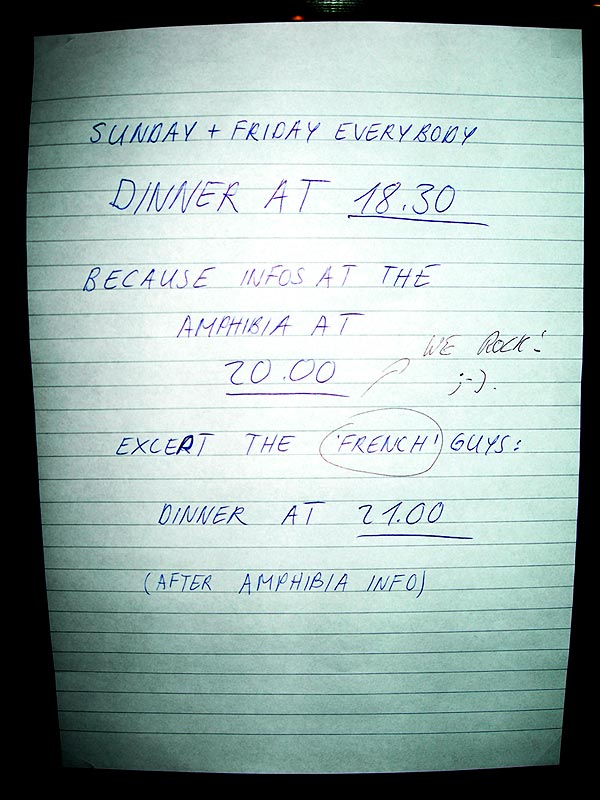 SUNDAY + FRIDAY EVERYBODY
DINNER AT 18.30
BECAUSE INFOS AT THE
AMPHIBIA AT
20.00
WE ROCK!
;-).
EXCEPT THE 'FRENCH' GUYS:
DINNER AT 21.00
(AFTER AMPHIBIA INFO)